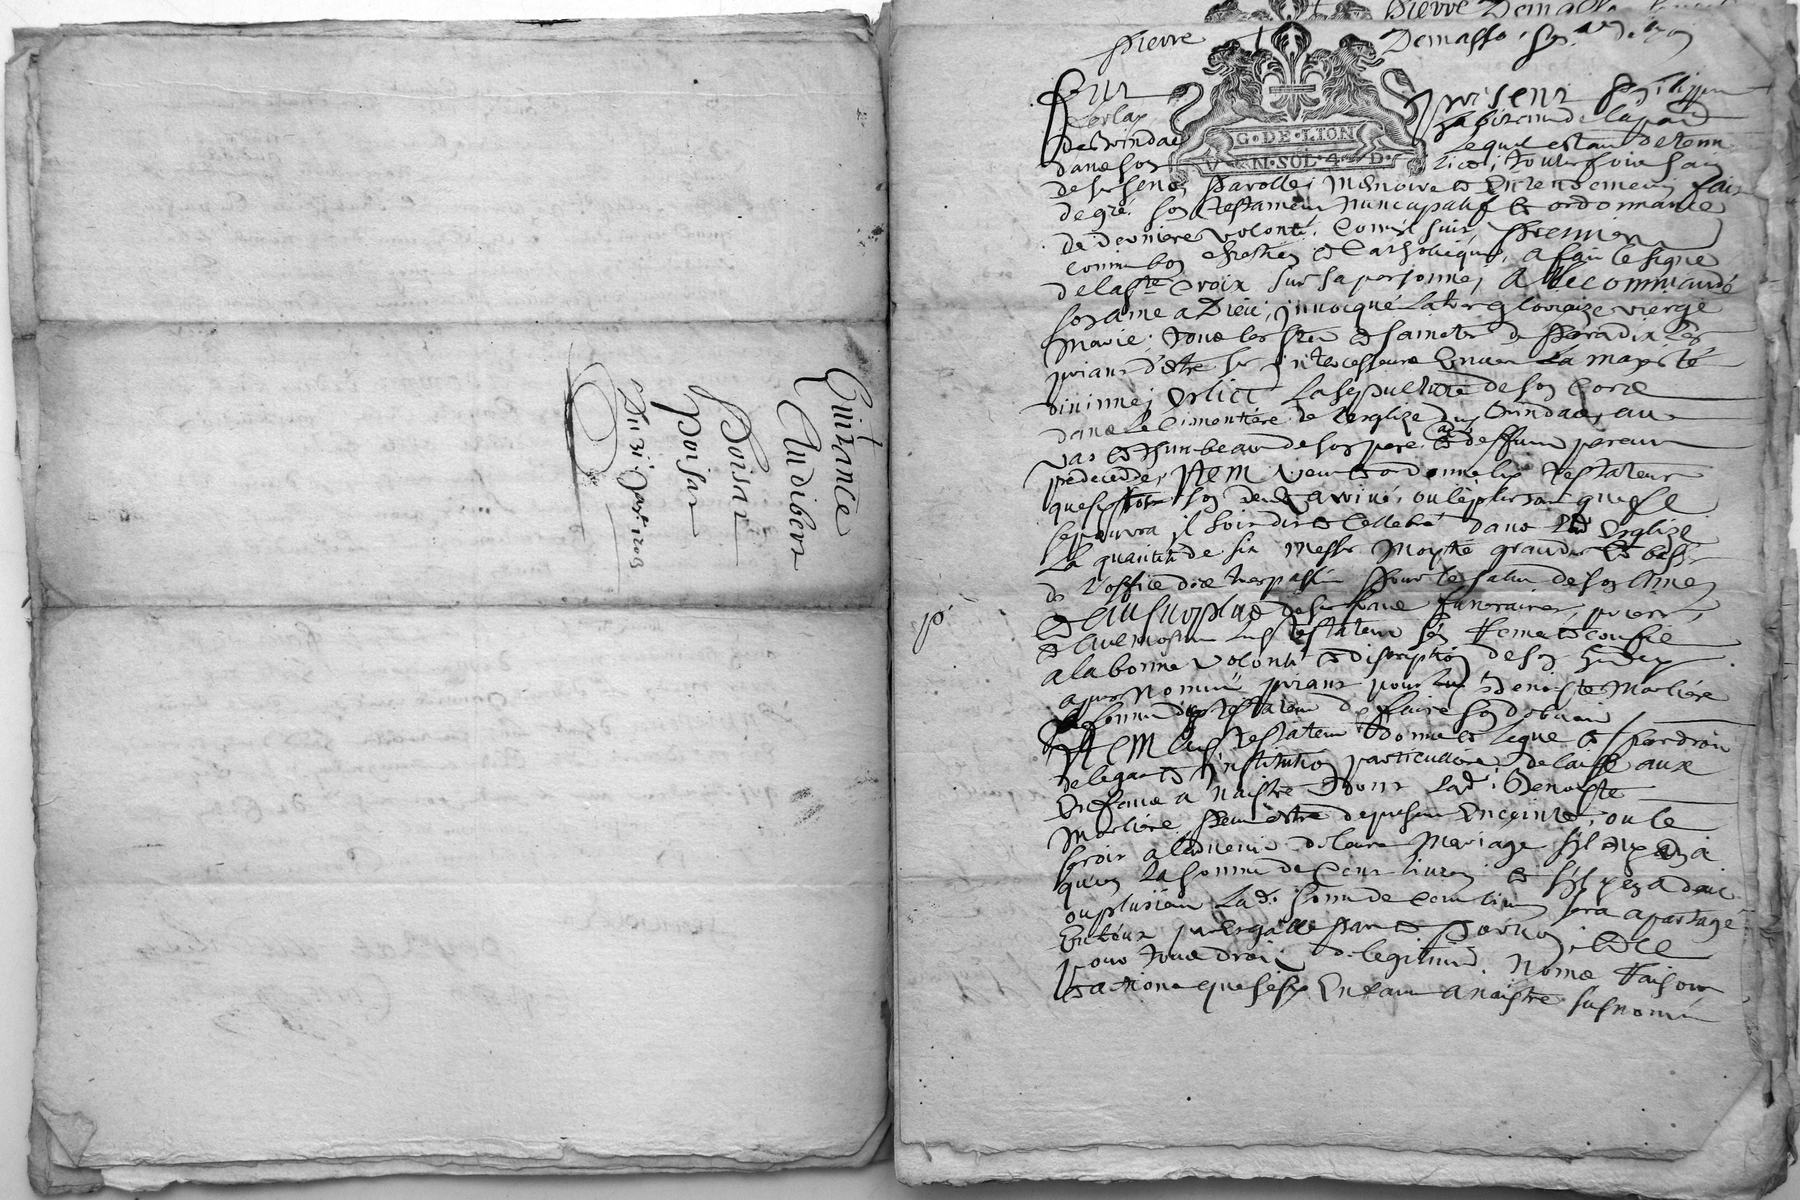 Quitance
Audibert
Boisar
Poisar
Du 31e Janr. 1703
Pierre Demasso
Pierre Demasso
G. DE. LION
V N. SOL. 4. D.
Fut present Philippe
habitant de la par
de Brindas lequel estant detenu
dans son lict, toutesfois sain
de ses sens parolle, memoire et entendement, fait
de gré son testament nuncupatif et ordonnance
de derniere volonté, comme suit, Premier
comme bon chrestien et catholique, a fait le signe
de la ste croix sur sa personne, a recommandé
son ame a Dieu, invoqué la tres glorieuze vierge
Marie, tous les sts et saintes de Paradix les
priant d'estre ses intercesseurs envers la majesté
divinne, eslict la sepulture de son corps
dans le cimentiere de l'esglize dud Brindas, au
vas et thumbeau de son pere et deffunts parents
predecedes, Item veut et ordonne led testateur
que son deceds arrivé, ou le plustost que se
pourra il soit dit et cellebré dans lad esglize
la quantité de six messes moytié grandes et basses
de l'office des trespassés pour le salut de son ame,
et au surplus de ses frais funeraires, prieres,
et aulmosnes led testateur s'en remet et confie
a la bonne volonté et discretion de son heritiere
apres nommée priant pour led Benoiste Marliere
sa femme dud testateur de faire son debvoir
Item led testateur donne et legue et par droit
de legat et institution particulliere delaisse aux
enfans a naistre dont lad. Benoiste
Marliere peut estre de present enceinte, ou le
seroit a l'advenir de leur mariage s'il n'y en a
qu'un la somme de cent livres et s'il y en a deux
ou plusieurs lad. somme de cent livres sera apartagé
entreux par esgalle part et portion, et ce
pour tous droits de legitime, noms raisons
et actions que sesd enfans a naistre susnommés